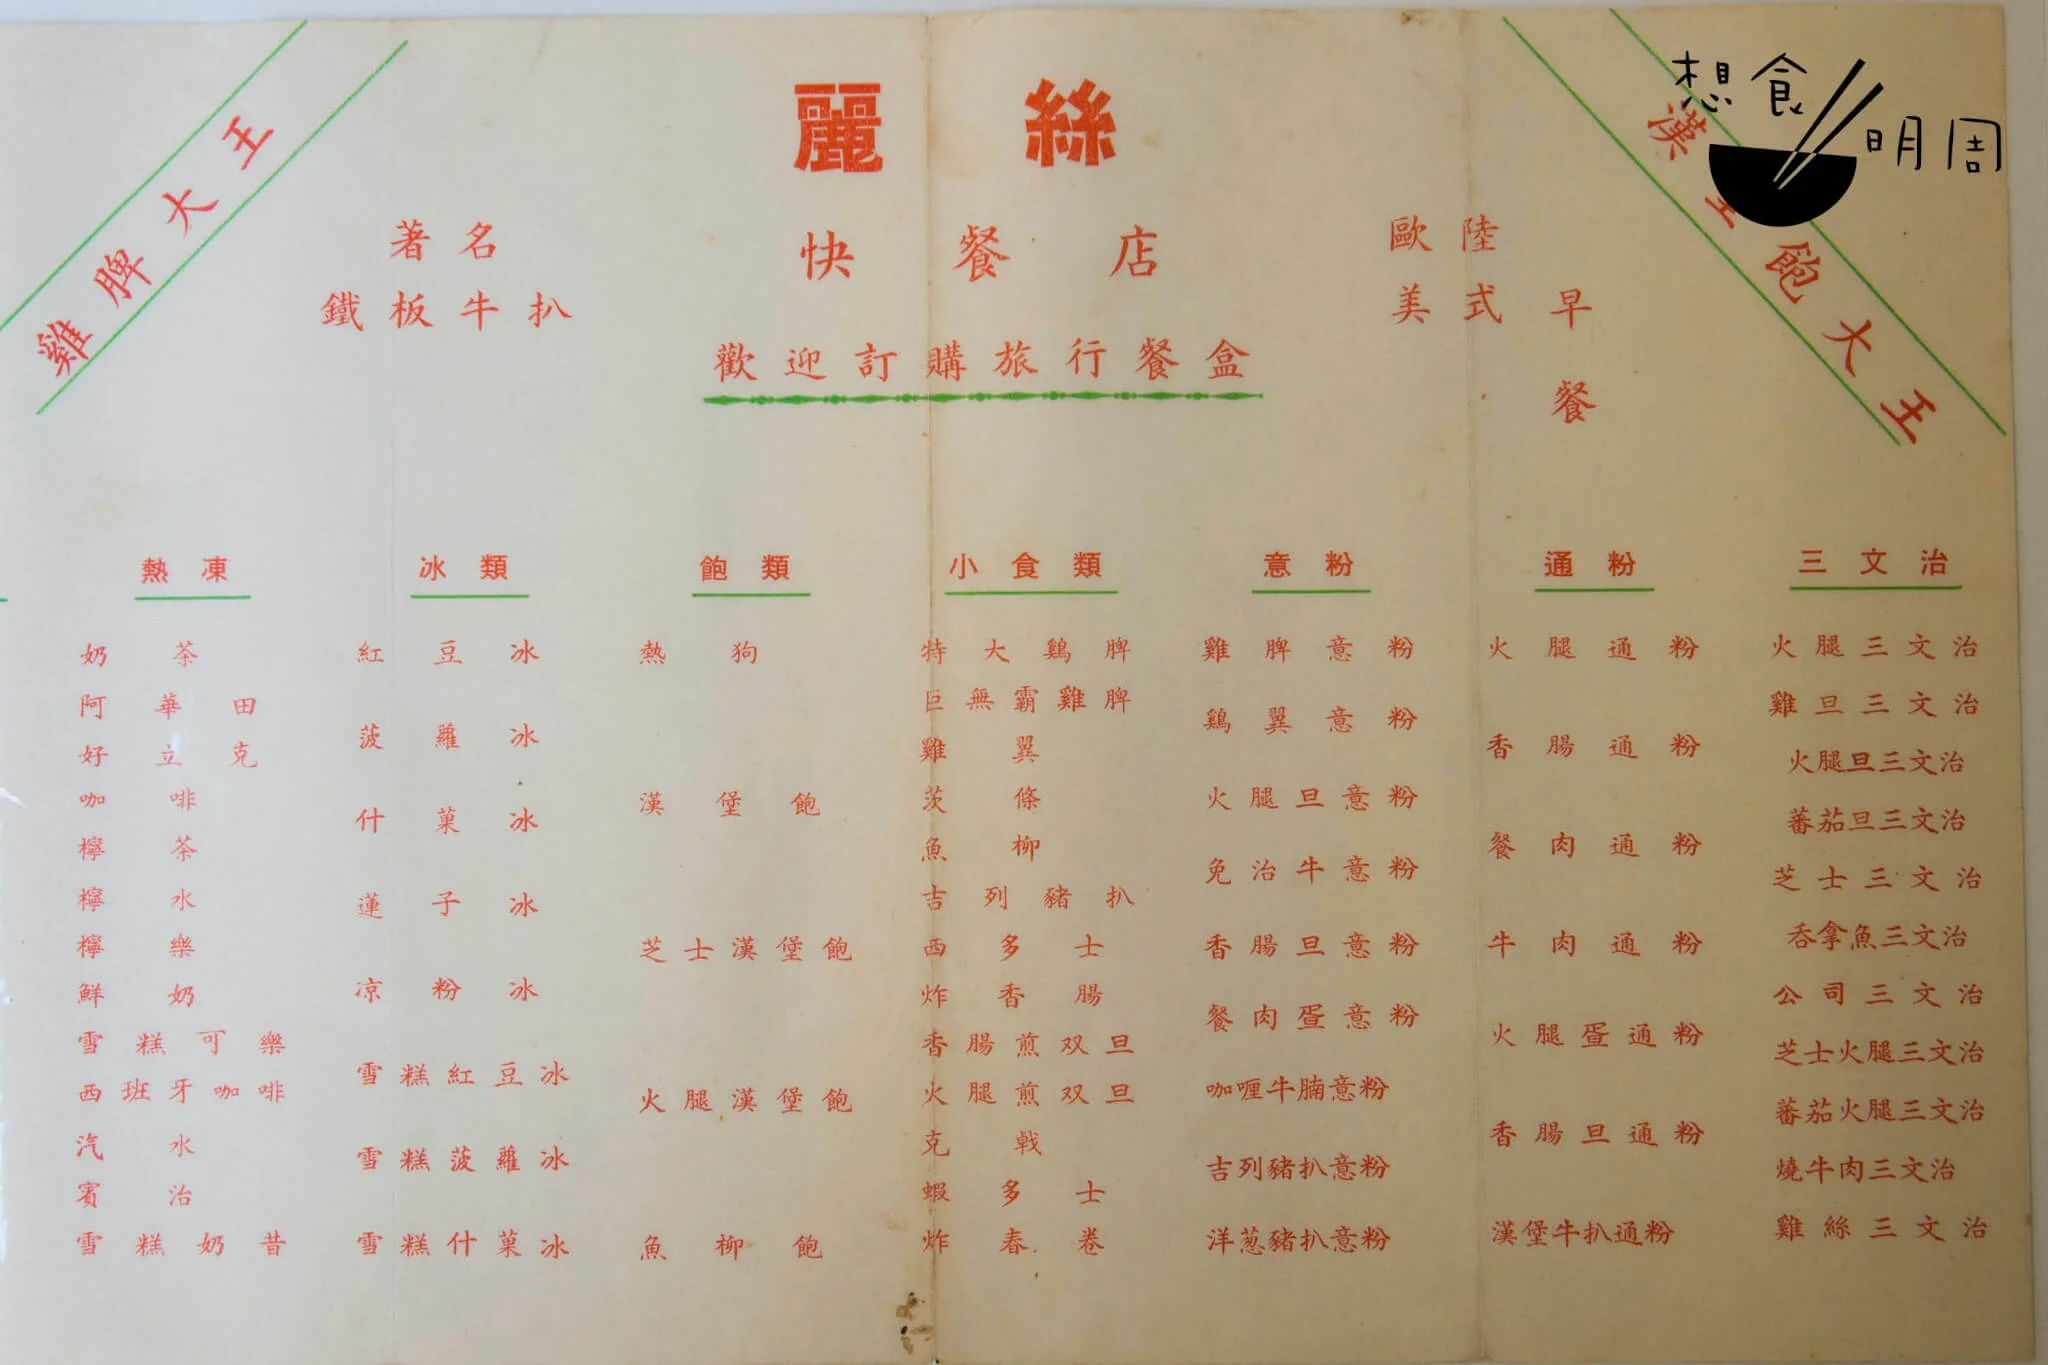 麗絲
快餐店
歡迎訂購旅行餐盒
雞脾大王
著名
鐵板牛扒
歐陸
美式早
餐
漢堡飽大王
想食
明周
熱凍
奶茶
阿華田
好立克
咖啡
檸茶
檸水
檸樂
鮮奶
雪糕可樂
西班牙咖啡
汽水
賓治
雪糕奶昔
冰類
紅豆冰
菠蘿冰
什菓冰
蓮子冰
凉粉冰
雪糕紅豆冰
雪糕菠蘿冰
雪糕什菓冰
飽類
熱狗
漢堡飽
芝士漢堡飽
火腿漢堡飽
魚柳飽
小食類
特大鷄脾
巨無霸雞脾
雞翼
茨條
魚柳
吉列豬扒
西多士
炸香腸
香腸煎双旦
火腿煎双旦
克戟
蝦多士
炸春卷
意粉
雞脾意粉
鷄翼意粉
火腿旦意粉
免治牛意粉
香腸旦意粉
餐肉蛋意粉
咖喱牛腩意粉
吉列豬扒意粉
洋葱豬扒意粉
通粉
火腿通粉
香腸通粉
餐肉通粉
牛肉通粉
火腿蛋通粉
香腸旦通粉
漢堡牛扒通粉
三文治
火腿三文治
雞旦三文治
火腿旦三文治
蕃茄旦三文治
芝士三文治
吞拿魚三文治
公司三文治
芝士火腿三文治
蕃茄火腿三文治
燒牛肉三文治
雞絲三文治